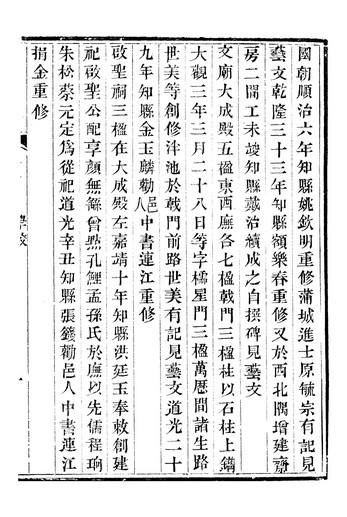 國朝順治六年知縣姚欽明重修蒲城進士原毓宗有記見
藝文乾隆三十三年知縣額樂春重修又於西北隅增建齋
房二間工未竣知縣戴治續成之自撰碑見藝文
文廟大成殿五楹東西廡各七楹戟門三楹柱以石柱上鐫
大觀三年三月二十八日等字櫺星門三楹萬厯間諸生路
世美等創修泮池於戟門前路世美有記見藝文道光二十
九年知縣金玉麟勸邑人中書連江重修
啟聖祠三楹在大成殿左嘉靖十年知縣洪廷玉奉敕創建
祀啟聖公配享顏無繇曾點孔鯉孟孫氏於廡以先儒程珦
朱松蔡元定爲從祀道光辛丑知縣張鑅勸邑人中書連江
捐金重修
學校